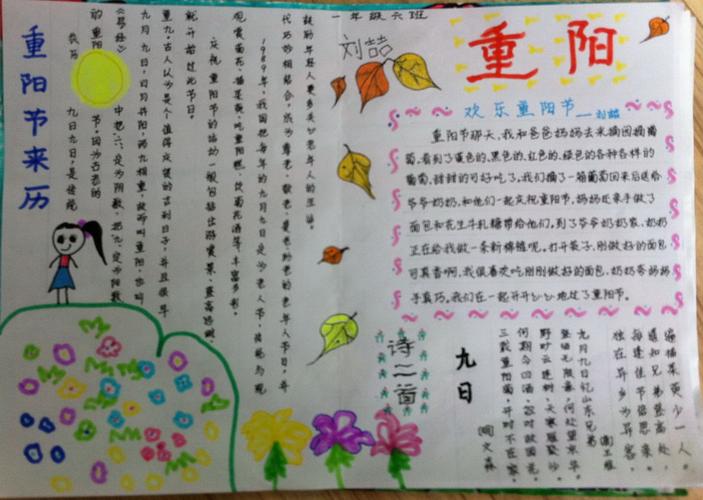 一年级六班
刘喆
重阳
欢乐重阳节——刘喆
重阳节那天,我和爸爸妈妈去采摘园摘葡
萄,看到了黄色的、黑色的、红色的、绿色的各种各样的
葡萄,甜甜的可好吃了,我们摘了一箱葡萄回来后送给
爷爷奶奶,和他们一起庆祝重阳节,妈妈还亲手做了
面包和花生牛轧糖带给他们,到了爷爷奶奶家,奶奶
正在给我做一条新棉裤呢,打开袋子,刚做好的面包
可真香啊,我很喜欢吃刚刚做好的面包,奶奶夸妈妈
手真巧,我们在一起开开心心地过了重阳节。
重阳节来历
重阳节,因为古老的
《易经》中把六定为阴数,把九定为阳数,
九月九日,日月并阳,两九相重,故而叫重阳,也叫
重九,古人认为是个值得庆贺的吉利日子,并且很早
就开始过此节日。
庆祝重阳节的活动一般包括出游赏景、登高远眺、
观赏菊花、插茱萸、吃重阳糕、饮菊花酒等
1989年,我国把每年的九月九日定为老人节,传统与现
代巧妙相结合,成为尊老、敬老、爱老、助老的老年人节日,并
鼓励年轻人更多关心老年人的生活。
诗二首
九日
九月九日忆山东兄弟
王维
独在异乡为异客,
每逢佳节倍思亲。
遥知兄弟登高处,
遍插茱萸少一人。
文森
三载重阳菊,开时不在家。
何期今日酒,忽对故园花。
野旷云连树,天寒雁聚沙。
登临无限意,何处望京华。